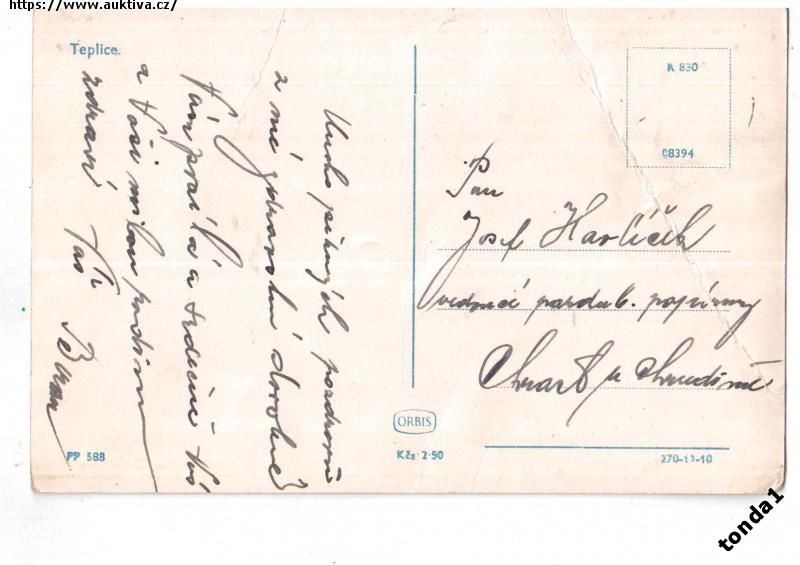 https://www.auktiva.cz/
Teplice.
Mnoho pěkných pozdravů
z mé zdravotní dovolené
Vám posílá a srdečně Vás
a Vaši milou rodinu
zdraví Váš Beran
K 830
08394
Pan
Josef Havlíček
vedoucí pardub. papírny
Chrast u Chrudimě
ORBIS
PP 588
Kčs 2·50
270-12-10
tonda1